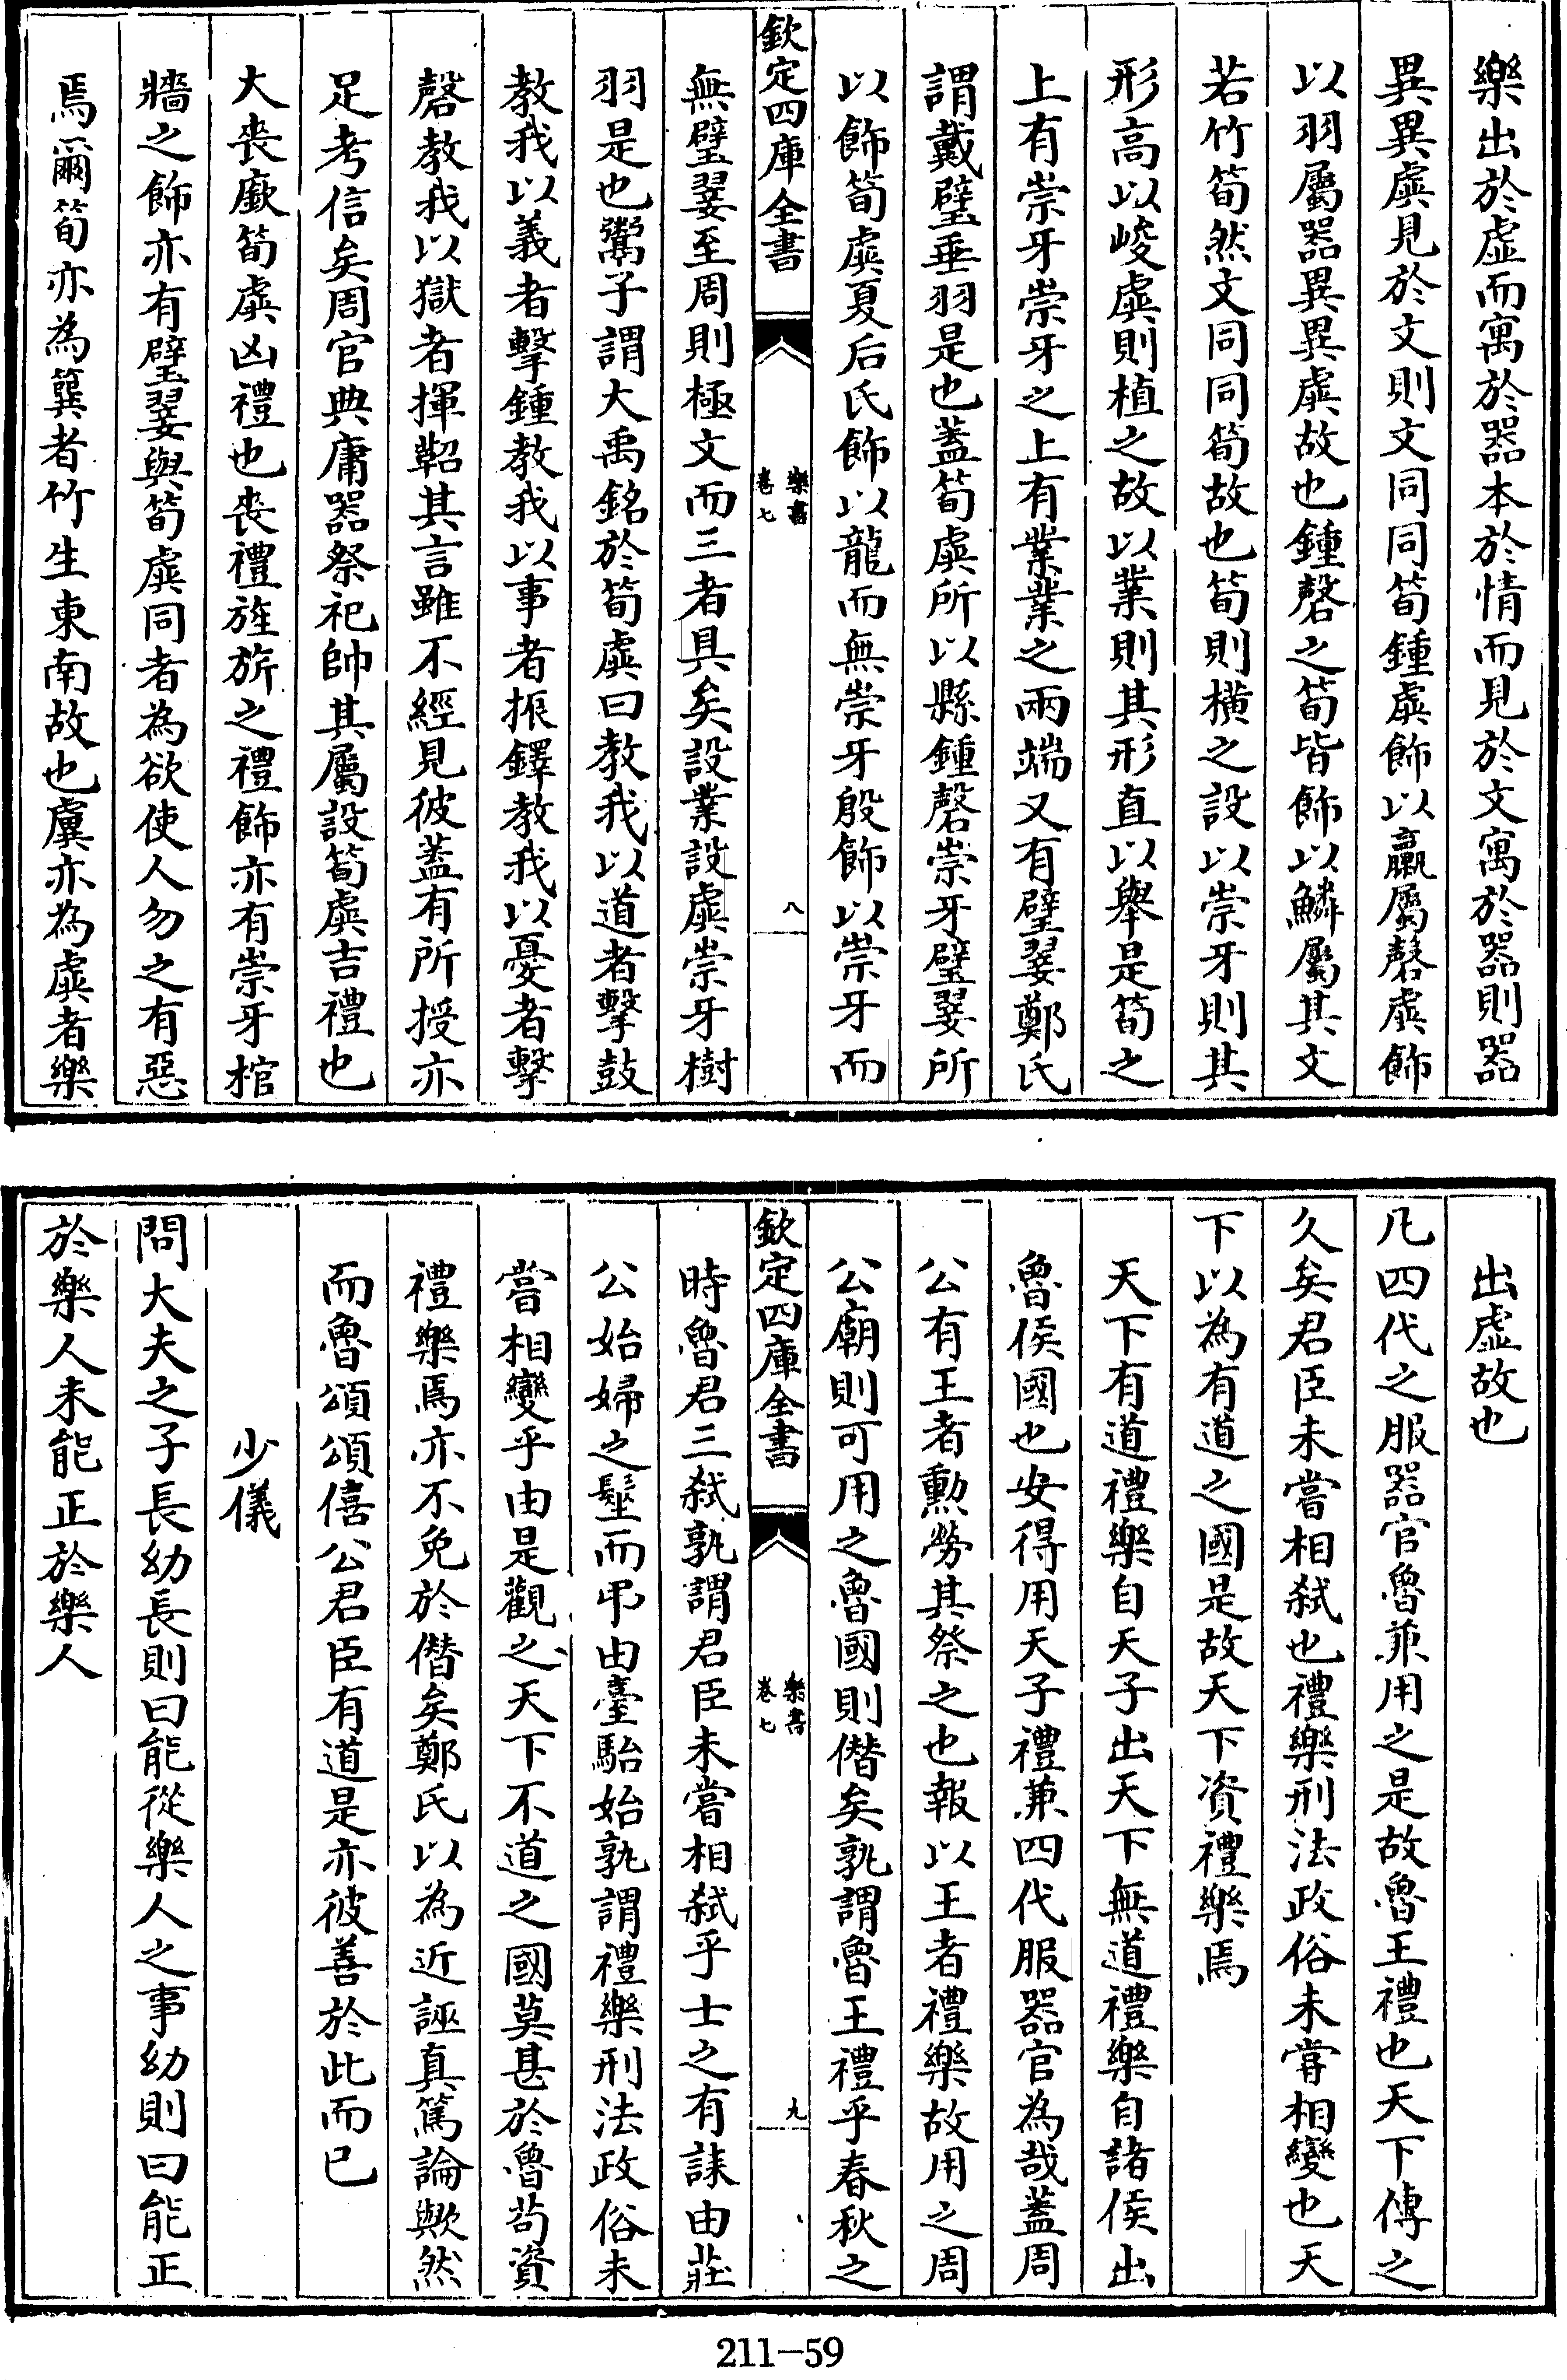 樂出於虛而寓於器本於情而見於文寓於器則器
異異虡見於文則文同同筍鍾虡飾以臝屬磬虡飾
以羽屬器異異虡故也鍾磬之筍皆飾以鱗屬其文
若竹筍然文同同筍故也筍則橫之設以崇牙則其
形高以峻虡則植之故以業則其形直以舉是筍之
上有崇牙崇牙之上有業業之兩端又有璧翣鄭氏
謂戴璧垂羽是也蓋筍虡所以縣鍾磬崇牙璧翣所
以飾筍虡夏后氏飾以龍而無崇牙殷飾以崇牙而
欽定四庫全書
樂書
卷七
八
無璧翣至周則極文而三者具矣設業設虡崇牙樹
羽是也鬻子謂大禹銘於筍虡曰教我以道者擊鼓
教我以義者擊鍾教我以事者振鐸教我以憂者擊
磬教我以獄者揮鞀其言雖不經見彼蓋有所授亦
足考信矣周官典庸器祭祀帥其屬設筍虡吉禮也
大喪廞筍虡凶禮也喪禮旌旂之禮飾亦有崇牙棺
牆之飾亦有璧翣與筍虡同者為欲使人勿之有惡
焉爾筍亦為簨者竹生東南故也虡亦為虡者樂
出虛故也
凡四代之服器官魯兼用之是故魯王禮也天下傳之
久矣君臣未嘗相弒也禮樂刑法政俗未嘗相變也天
下以為有道之國是故天下資禮樂焉
天下有道禮樂自天子出天下無道禮樂自諸侯出
魯侯國也安得用天子禮兼四代服器官為哉蓋周
公有王者勲勞其祭之也報以王者禮樂故用之周
公廟則可用之魯國則僭矣孰謂魯王禮乎春秋之
欽定四庫全書
樂書
卷七
九
時魯君三弒孰謂君臣未嘗相弒乎士之有誄由莊
公始婦之髽而弔由臺駘始孰謂禮樂刑法政俗未
嘗相變乎由是觀之天下不道之國莫甚於魯茍資
禮樂焉亦不免於僭矣鄭氏以為近誣真篤論歟然
而魯頌頌僖公君臣有道是亦彼善於此而已
少儀
問大夫之子長幼長則曰能從樂人之事幼則曰能正
於樂人未能正於樂人
211-59